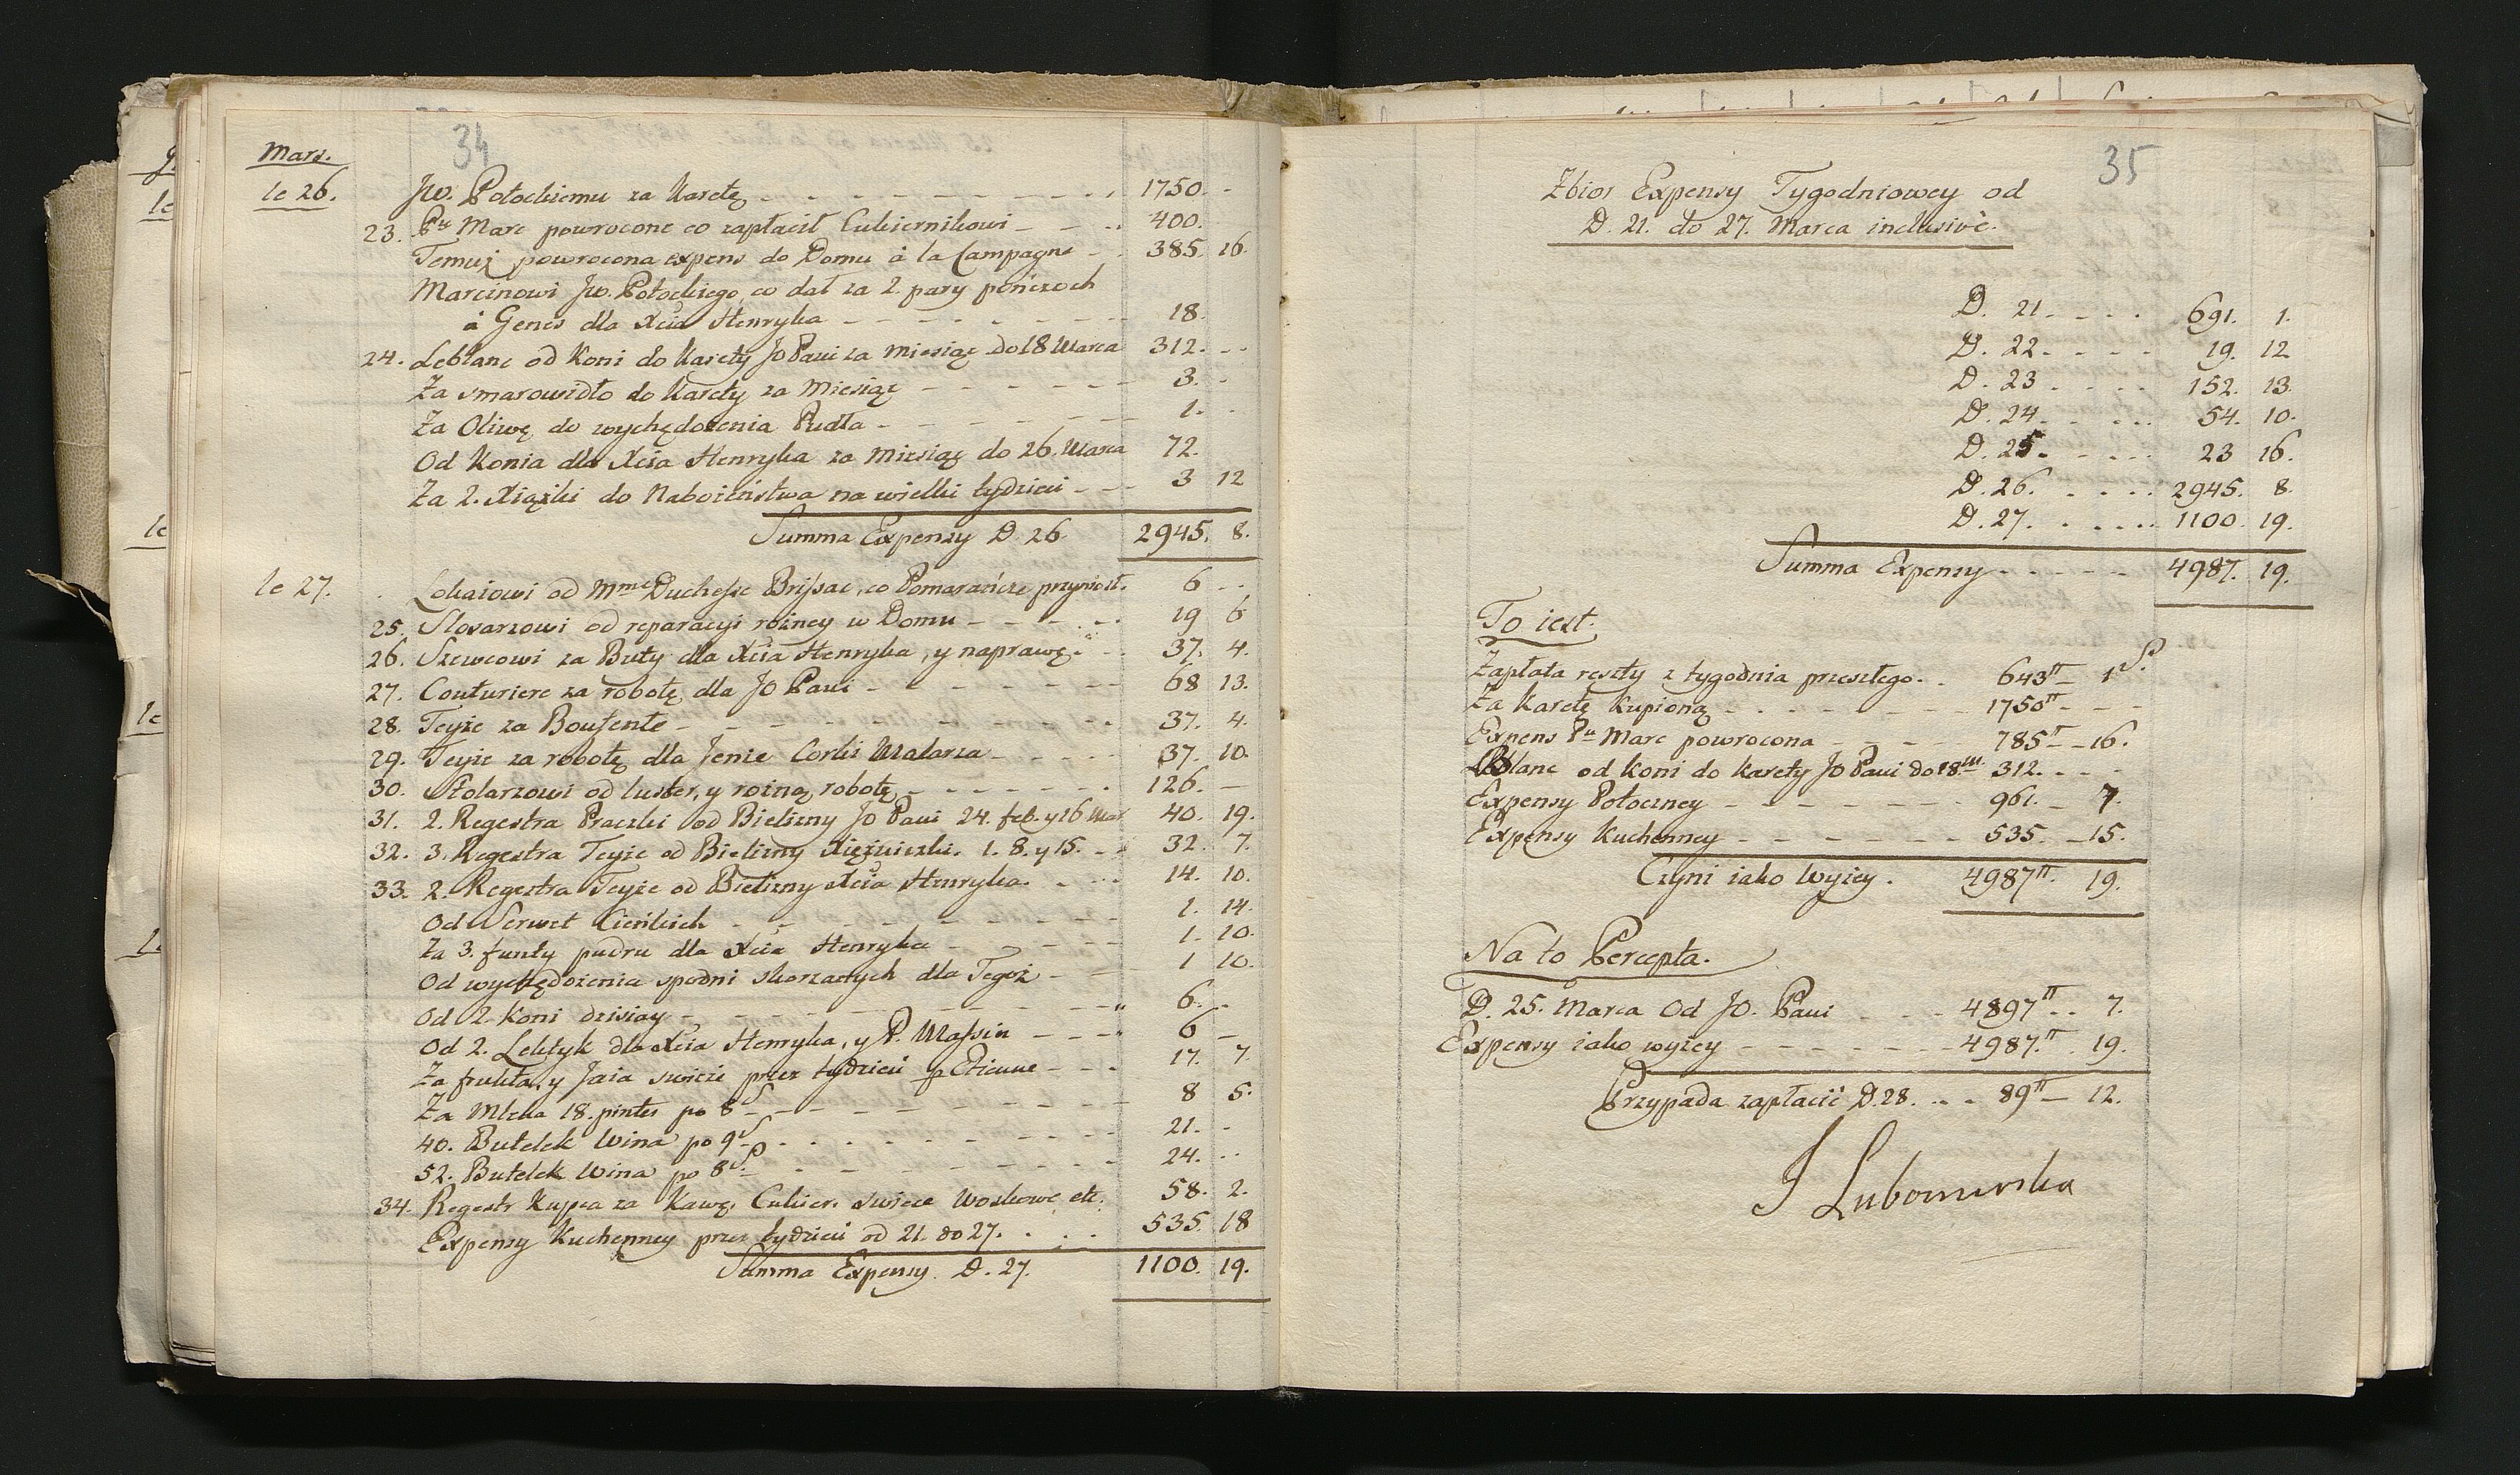 34
Mars.
le 26. Jw. Potockiemu za Karetę 1750. -
23. Pu Marc powrocone co zapłacił Cukiernikowi 400.
Temuż powrocona expens do Domu à la Campagne 385. 16.
Marcinowi Jw. Potockiego, co dał za 2. pary pończoch
à Genes dla Xcia Henryka 18.
24. Leblanc od Koni do Karety JO Pani za Miesiąc do 18 Marca 312. -
Za smarowidło do Karety za Miesiąc 3. -
Za Oliwę do wychędożenia Pudła 1. -
Od Konia dla Xcia Henryka za Miesiąc do 26. Marca 72.
Za 2. Xiążki do Nabożeństwa na wielki tydzień 3 12
Summa Expensy D. 26 2945. 8.
le 27. Lokaiowi od Mme Duchesse Brissac, co Pomarańcze przyniosł. 6 -
25. Slosarzowi od reparacyi rożney w Domu 19 6
26. Szewcowi za Buty dla Xcia Henryka, y naprawę 37. 4.
27. Couturiere za robotę dla JO Pani 68 13.
28. Teyże za Boufente 37. 4.
29. Teyże za robotę dla Jenie Corki Malarza 37. 10.
30. Stolarzowi od luster, y rożną robotę 126. -
31. 2. Regestra Praczki od Bielizny JO Pani 24. feb. y 16 Mar 40. 19.
32. 3. Regestra Teyże od Bielizny Xiężniczki. 1. 8. y 15. 32. 7.
33. 2. Regestra Teyże od Bielizny Xcia Henryka. 14. 10.
Od Serwet Cieńkich 1. 14.
Za 3. funty pudru dla Xcia Henryka 1. 10.
Od wychędożenia spodni skorzanych dla Tegoż 1 10.
Od 2. Koni dzisiay 6. -
Od 2. Lektyk dla Xcia Henryka, y P. Massin 6 -
Za frukta, y Jaia swieże przez tydzień p Etienne 17. 7.
Za Mleka 18. pintes po 8 S 8 5.
40. Butelek Wina po 9 S 21. -
52. Butelek Wina po 8 S 24. -
34. Regestr Kupca za Kawę, Cukier. swiece Woskowe etc. 58. 2.
Expensy Kuchenney przez tydzień od 21. do 27. 535. 18
Summa Expensy D. 27. 1100. 19.
35
Zbior Expensy Tygodniowey od
D. 21. do 27. Marca inclusivè.
D. 21. 691. 1.
D. 22. 19. 12
D. 23 152. 13.
D. 24. 54. 10.
D. 25. 23 16.
D. 26. 2945. 8.
D. 27. 1100. 19.
Summa Expensy 4987. 19.
To iest.
Zapłata reszty z tygodnia przeszłego. 643tt 1 S.
Za Karetę Kupioną 1750tt -
Expens Pu Marc powrocona 785tt 16.
Leblanc od koni do karety JO Pani do 18.M 312. -
Expensy Potoczney 961. 7.
Expensy Kuchenney 535. 15.
Czyni iako Wyżey. 4987tt. 19.
Na to Percepta.
D. 25. Marca Od JO. Pani 4897tt 7.
Expensy iako wyżey 4987.tt 19.
Przypada zapłacić D. 28. 89tt 12.
J Lubomirska